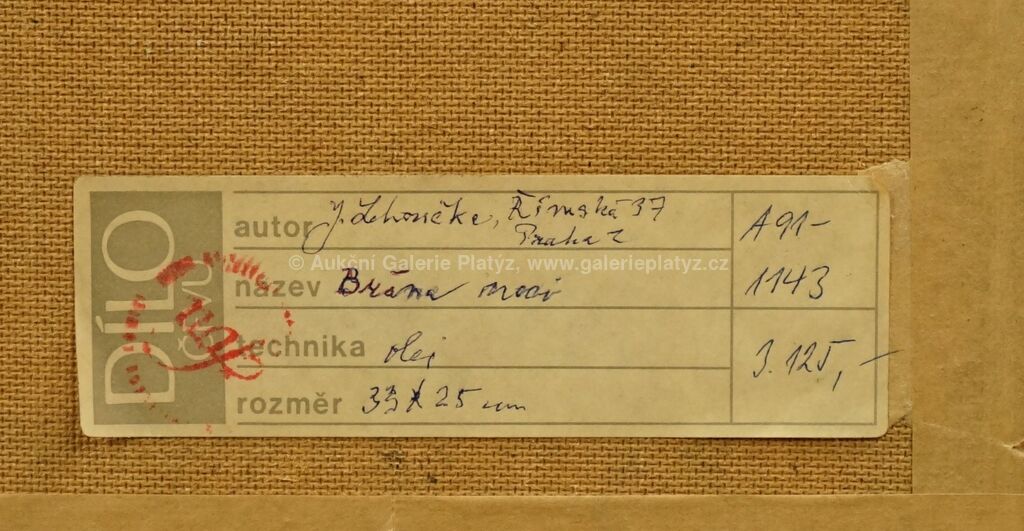 DÍLO
ČFVU
autor J. Lehoučka, Římská 37
Praha 2
A91-
© Aukční Galerie Platýz, www.galerieplatyz.cz
název Brána moci
1143
technika olej
3.125,-
rozměr 33 x 25 cm